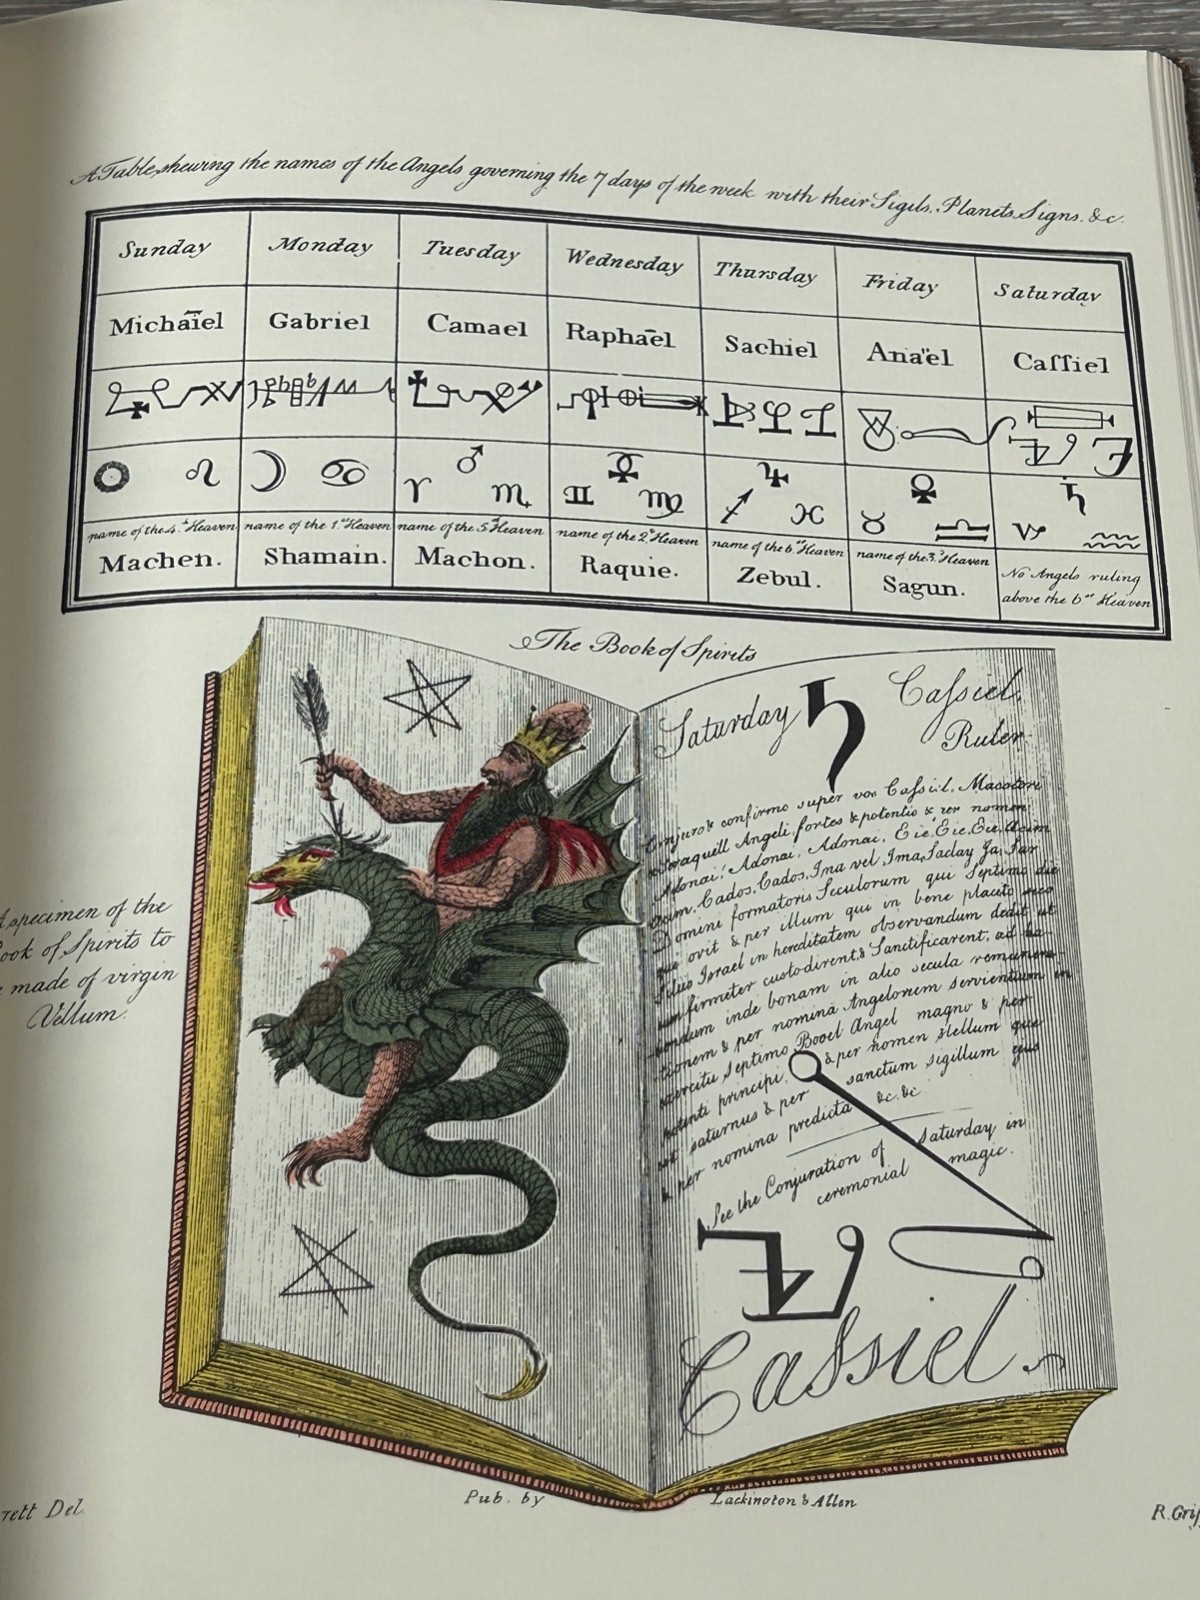 A Table, shewing the names of the Angels governing the 7 days of the week with their Sigils, Planets, Signs, &c.
Sunday Monday Tuesday Wednesday Thursday Friday Saturday
Michaïel Gabriel Camael Raphael Sachiel Anaël Caſſiel
☉ ♌ ☽ ♋ ♂ ♈ ♏ ☿ ♊ ♍ ♃ ♐ ♓ ♀ ♉ ♎ ♄ ♑ ♒
name of the 4.th Heaven name of the 1.st Heaven name of the 5.th Heaven name of the 2.d Heaven name of the 6.th Heaven name of the 3.d Heaven No Angels ruling
Machen. Shamain. Machon. Raquie. Zebul. Sagun. above the 6.th Heaven
The Book of Spirits
Saturday ♄ Caſsiel.
Ruler.
Conjuro & confirmo super vos Caſsiel, Macatori
Adonai, Adonai, Adonai, Eie, Eie, Eie, Acim
Acim, Cados, Cados, Ina vel Ima, Saday Ja, Sar
Domini formatoris Seculorum qui Septimo die
ovit & per illum qui in bene placito suo
filius Israel in hereditatem observandum dedit ut
firmeter custodirent & Sanctificarent, ad
inde bonam in alio secula
& per nomina Angelorem servientium in
exercitu septimo Booel Angel magno & per
potenti principi & per nomen stellum que
est saturnus & per sanctum sigillum ejus
& per nomina predicta &c. &c.
See the Conjuration of Saturday in
ceremonial magic.
Cassiel.
A specimen of the
Book of Spirits to
made of virgin
Vellum.
rett Del.
Pub. by Lackington & Allen
R. Grif